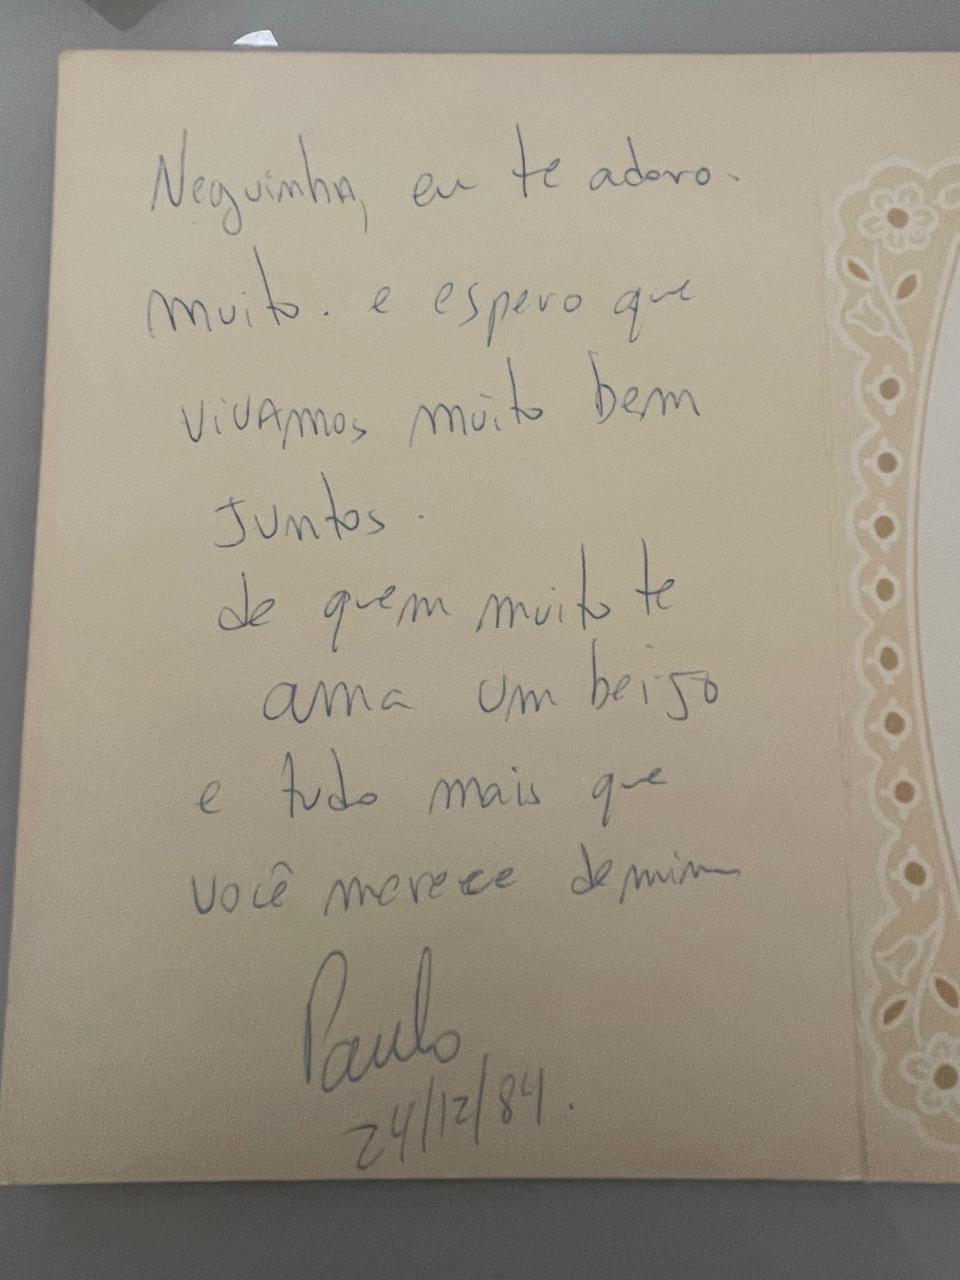 Neguinha, eu te adoro.
muito. e espero que
vivamos muito bem
juntos.
de quem muito te
ama um beijo
e tudo mais que
você merece de mim
Paulo
24/12/84.